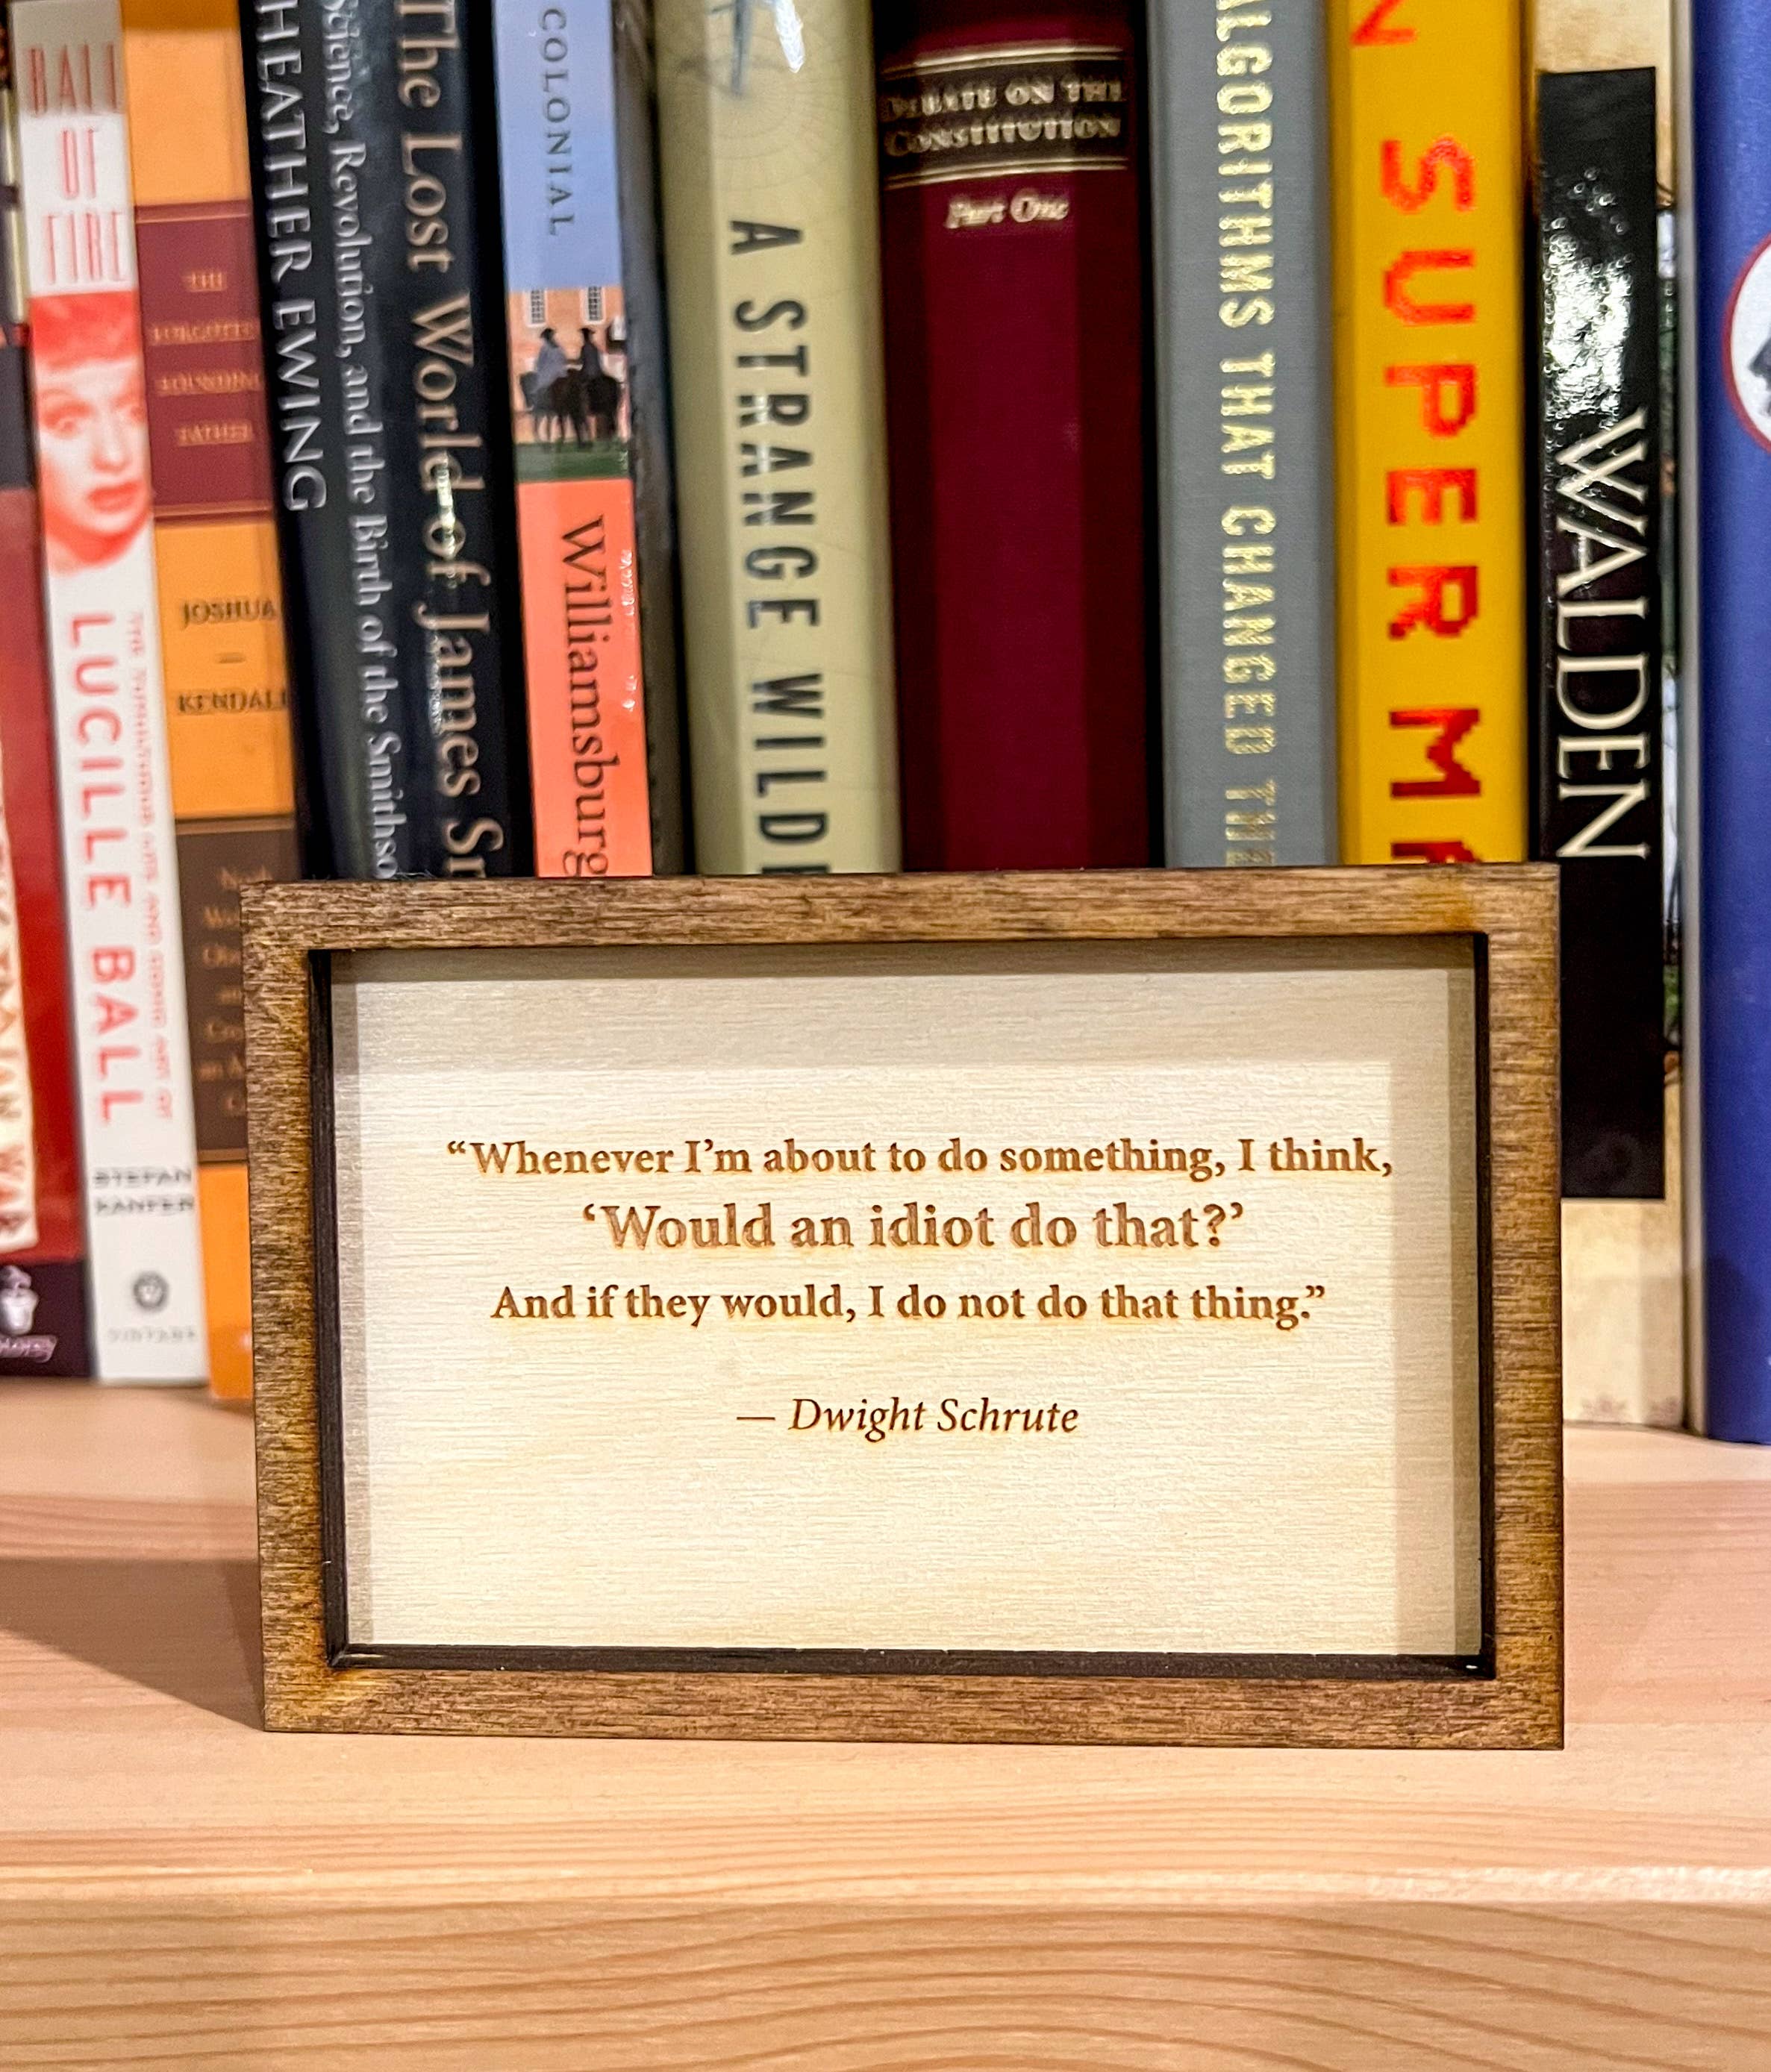 BALL
OF
FIRE
LUCILLE BALL
STEFAN
KANFER
THE
FORGOTTEN
FOUNDING
FATHER
JOSHUA
—
KENDALL
HEATHER EWING
Science, Revolution, and the Birth of the Smithso
The Lost World of James Sm
COLONIAL
Williamsburg
A STRANGE WILDE
DEBATE ON THE
CONSTITUTION
Part One
ALGORITHMS THAT CHANGED THE
N SUPER MA
WALDEN
“Whenever I’m about to do something, I think,
‘Would an idiot do that?’
And if they would, I do not do that thing.”
— Dwight Schrute